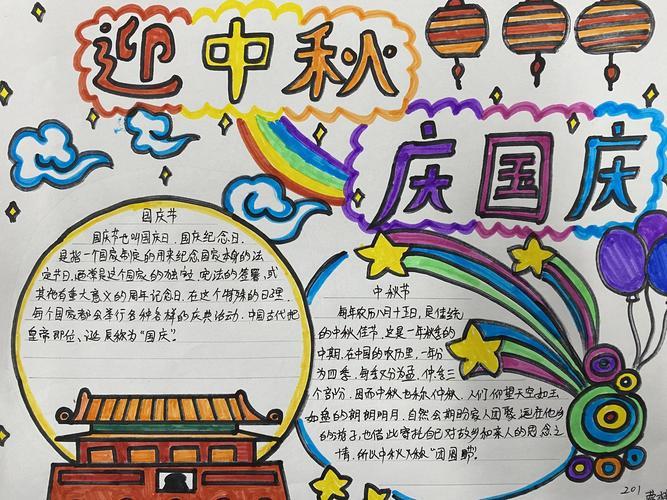 迎中秋
庆国庆
国庆节
国庆节也叫国庆日、国庆纪念日，
是指一个国家制定的用来纪念国家本身的法
定节日，通常是这个国家的独立、宪法的签署、或
其他有重大意义的周年纪念日。在这个特殊的日子里，
每个国家都会举行各种各样的庆典活动。中国古代把
皇帝即位、诞辰称为“国庆”。
中秋节
每年农历八月十五日，是传统
的中秋佳节。这是一年秋季的
中期，在中国的农历里，一年分
为四季，每季又分为孟、仲、季三
个部分，因而中秋也称仲秋。人们仰望天空如玉
如盘的朗朗明月，自然会期盼家人团聚。远在他乡
的游子，也借此寄托自己对故乡和亲人的思念之
情。所以中秋又称“团圆节”。
201